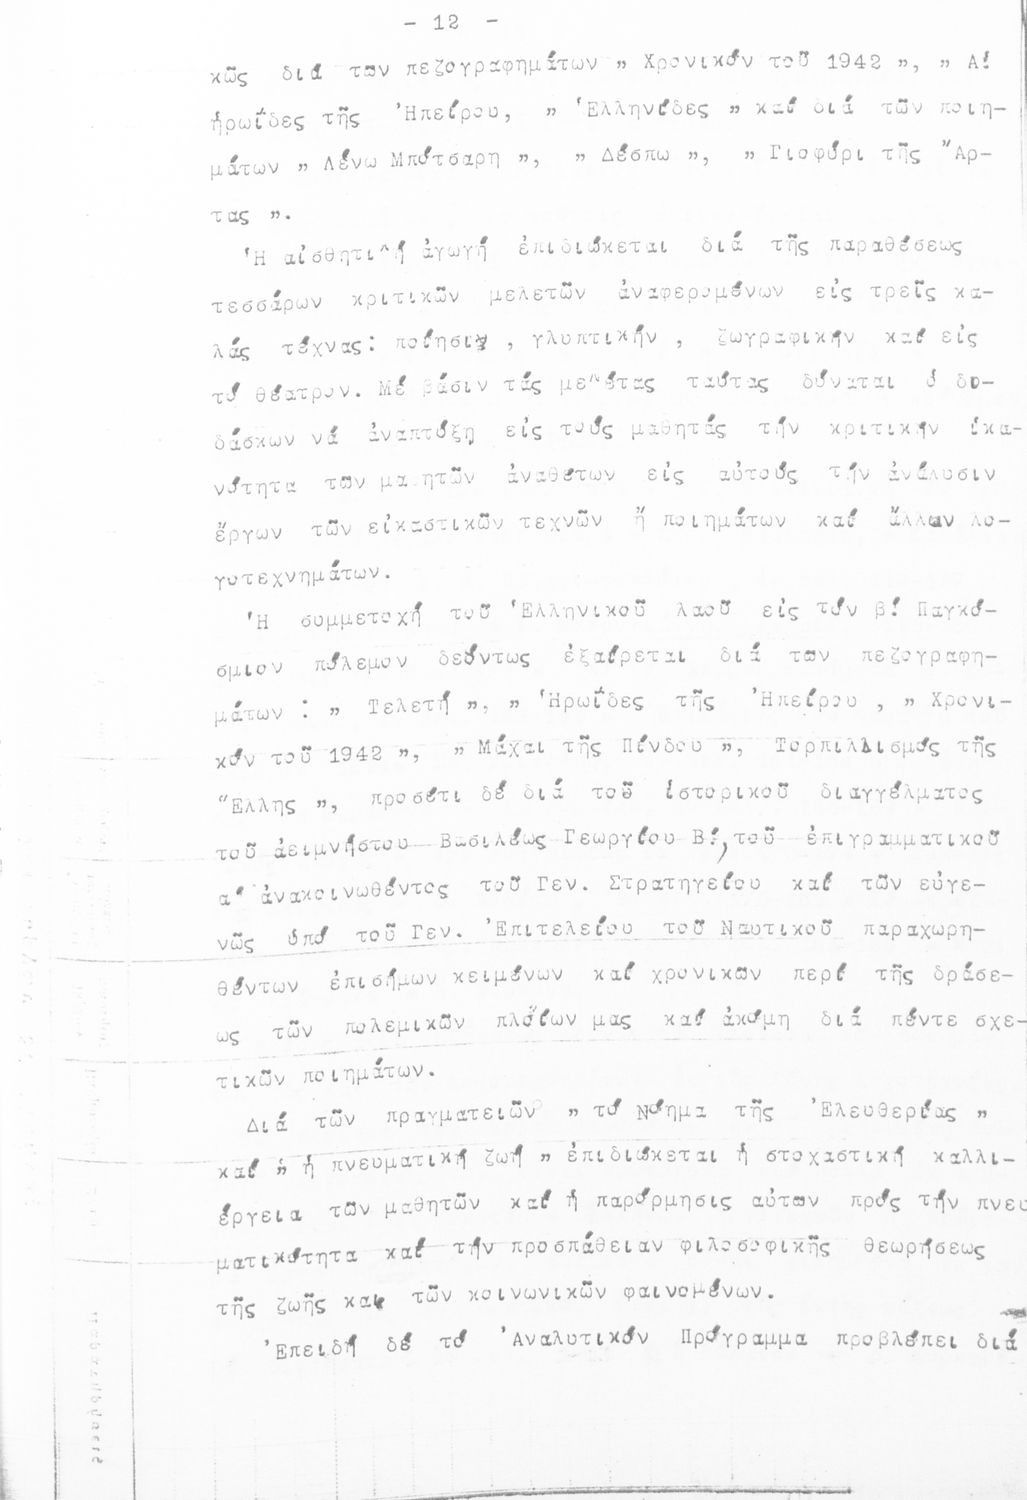 - 12 -
κῶς διά των πεζογραφημάτων „ Χρονικόν τοῦ 1942 „, „ Αἱ
ἡρωΐδες τῆς Ἠπείρου, „ Ἑλληνίδες „ καί διά τῶν ποιη-
μάτων „ Λένω Μπότσαρη „, „ Δέσπω „, „ Γιοφύρι τῆς Ἄρ-
τας „.
Ἡ αἰσθητική ἀγωγή ἐπιδιώκεται διά τῆς παραθέσεως
τεσσάρων κριτικῶν μελετῶν ἀναφερομένων εἰς τρεῖς κα-
λάς τέχνας: ποίησιν, γλυπτικήν, ζωγραφικήν καί εἰς
τό θέατρον. Μέ βάσιν τάς μελέτας ταύτας δύναται ὁ δι-
δάσκων νά ἀναπτύξη εἰς τούς μαθητάς τήν κριτικήν ἱκα-
νότητα των μαθητῶν ἀναθέτων εἰς αὐτούς τήν ἀνάλυσιν
ἔργων τῶν εἰκαστικῶν τεχνῶν ἤ ποιημάτων καί ἄλλων λο-
γοτεχνημάτων.
Ἡ συμμετοχή τοῦ Ἑλληνικοῦ λαοῦ εἰς τόν β! Παγκό-
σμιον πόλεμον δεόντως ἐξαίρεται διά των πεζογραφη-
μάτων : „ Τελετή „, „ Ἡρωΐδες τῆς Ἠπείρου , „ Χρονι-
κόν τοῦ 1942 „, „ Μάχαι τῆς Πίνδου „, Τορπιλλισμός τῆς
Ἕλλης „, προσέτι δέ διά τοῦ ἱστορικοῦ διαγγέλματος
τοῦ ἀειμνήστου Βασιλέως Γεωργίου Β!, τοῦ ἐπιγραμματικοῦ
α' ἀνακοινωθέντος τοῦ Γεν. Στρατηγείου καί τῶν εὐγε-
νῶς ὑπό τοῦ Γεν. Ἐπιτελείου τοῦ Ναυτικοῦ παραχωρη-
θέντων ἐπισήμων κειμένων καί χρονικων περί τῆς δράσε-
ως τῶν πολεμικῶν πλοίων μας καί ἀκόμη διά πέντε σχε-
τικῶν ποιημάτων.
Διά τῶν πραγματειῶν „ τό Νόημα τῆς Ἐλευθερίας „
καί „ ἡ πνευματική ζωή „ ἐπιδιώκεται ἡ στοχαστική καλλι-
έργεια τῶν μαθητῶν καί ἡ παρόρμησις αὐτων πρός τήν πνευ
ματικότητα καί τήν προσπάθειαν φιλοσοφικῆς θεωρήσεως
τῆς ζωῆς καί τῶν κοινωνικῶν φαινομένων.
Ἐπειδή δέ τό Ἀναλυτικόν Πρόγραμμα προβλέπει διά